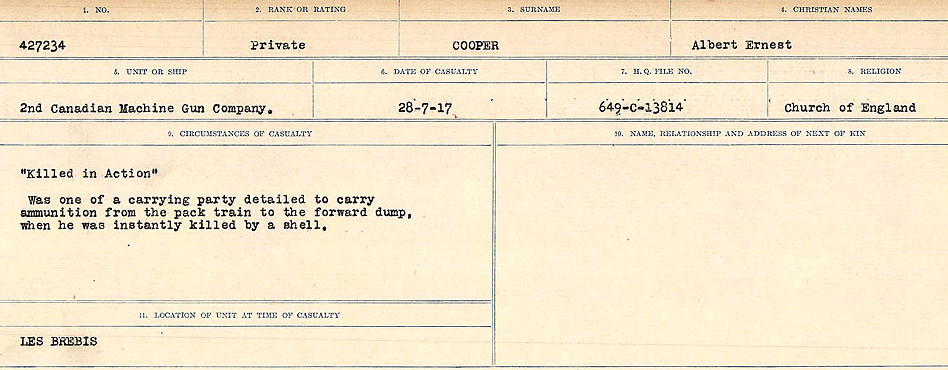 1. NO. 2. RANK OR RATING 3. SURNAME 4. CHRISTIAN NAMES
427234 Private COOPER Albert Ernest
5. UNIT OR SHIP 6. DATE OF CASUALTY 7. H.Q. FILE NO. 8. RELIGION
2nd Canadian Machine Gun Company. 28-7-17 649-C-13814 Church of England
9. CIRCUMSTANCES OF CASUALTY 10. NAME, RELATIONSHIP AND ADDRESS OF NEXT OF KIN
"Killed in Action"
Was one of a carrying party detailed to carry
ammunition from the pack train to the forward dump,
when he was instantly killed by a shell.
11. LOCATION OF UNIT AT TIME OF CASUALTY
LES BREBIS